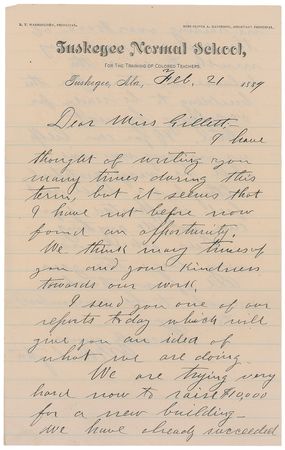 B. T. WASHINGTON, PRINCIPAL.
MISS OLIVIA A. DAVIDSON, ASSISTANT PRINCIPAL.
Tuskegee Normal School,
FOR THE TRAINING OF COLORED TEACHERS.
Tuskegee, Ala., Feb. 21 1884
Dear Miss Gillett.
I have
thought of writing you
many times during this
term, but it seems that
I have not before now
found an opportunity.
We think many times of
you and your kindness
towards our work.
I send you one of our
reports today which will
give you an idea of
what we are doing.
We are trying very
hard now to raise $10,000
for a new building—
We have already succeeded